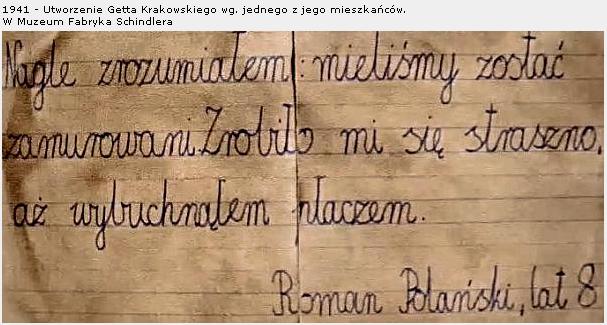 1941 - Utworzenie Getta Krakowskiego wg. jednego z jego mieszkańców.
W Muzeum Fabryka Schindlera
Nagle zrozumiałem: mieliśmy zostać
zamurowani. Zrobiło mi się straszno,
aż wybuchnąłem płaczem.
Roman Polański, lat 8